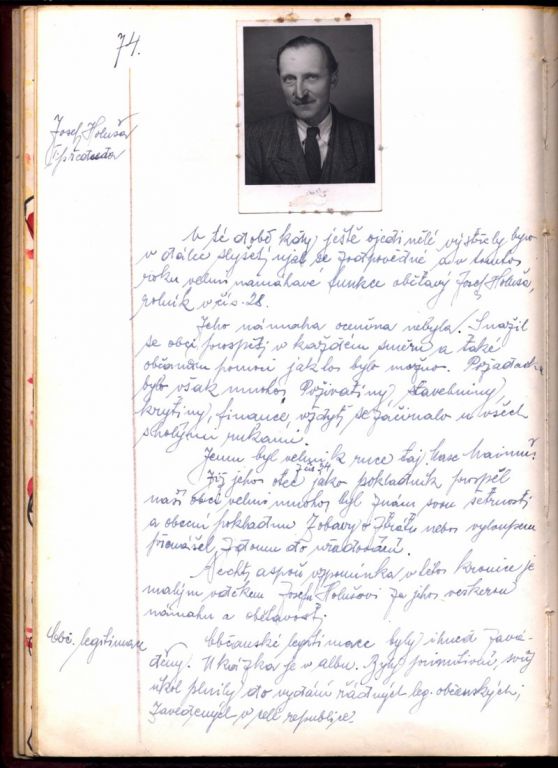 74.
Josef Holuša
předseda
V té době kdy ještě ojedinělé výstřely bylo
v dálce slyšeti, ujal se zodpovědné a v tomto
roku velmi namáhavé funkce obětavý Josef Holuša,
rolník v čís. 28.
Jeho námaha oceněna nebyla. Snažil
se obci prospěti v každém směru a také
občanům pomoci jak to bylo možno. Požadavků
bylo však mnoho. Poživatiny, stavebniny,
krytiny, finance, vždyť se začínalo u všech
s holýma rukama.
Jemu byl velmi k ruce taj.
Již jeho otec jako pokladník prospěl
naší obci velmi mnoho, byl znám svou šetrností
a obecní pokladnu z obavy o ztrátu nebo vyloupení
přenášel z domu do úřadování.
Nechť aspoň vzpomínka v této kronice je
malým vděkem Josefu Holušovi za jeho veškerou
námahu a obětavost.
Obč. legitimace
Občanské legitimace byly ihned zavá-
děny. Ukázka je v albu. Byly primitivní, svůj
úkol plnily do vydání řádných leg. občanských,
zavedených v celé republice.